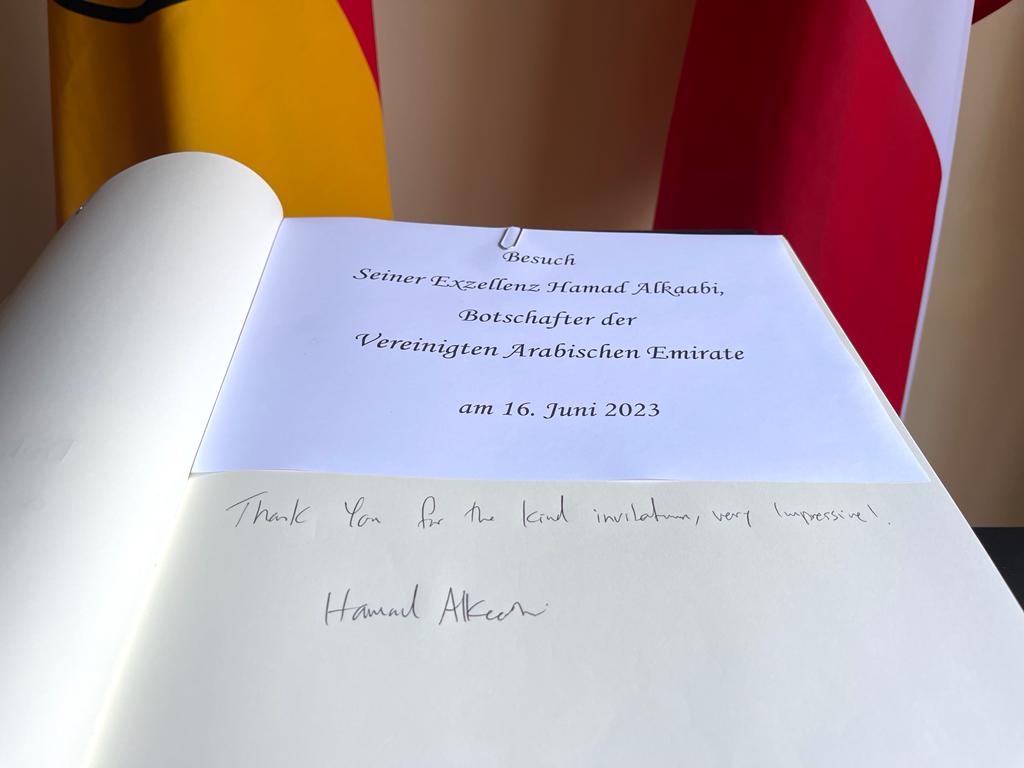 Besuch
Seiner Exzellenz Hamad Alkaabi,
Botschafter der
Vereinigten Arabischen Emirate
am 16. Juni 2023
Thank You for the kind invitation, very Impressive!
Hamad Alkaabi